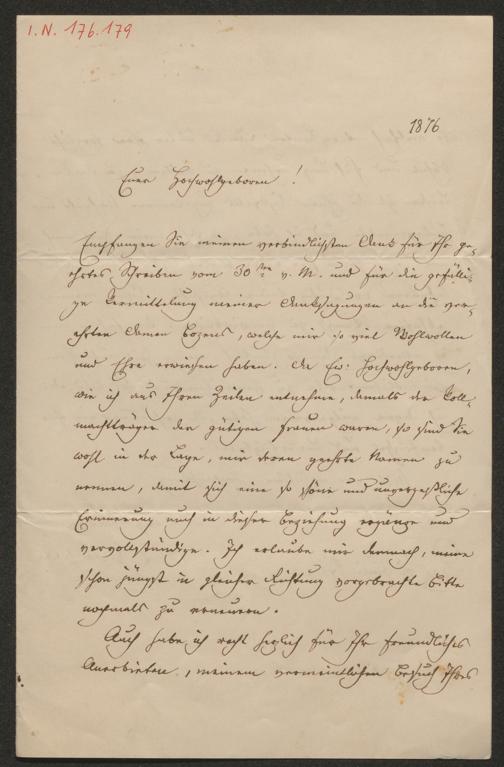 I.N. 176.179
1876
Euer Hochwohlgeboren!
Empfangen Sie meinen verbindlichsten Dank für Ihr ge-
ehrtes Schreiben vom 30ten v. M. und für die gefälli-
ge Vermittelung meiner Danksagungen an die ver-
ehrten Damen Bozens, welche mir so viel Wohlwollen
und Ehre erwiesen haben. Da Eu: Hochwohlgeboren,
wie ich aus Ihren Zeilen entnehme, damals der Voll-
machtträger der gütigen Frauen waren, so sind Sie
wohl in der Lage, mir deren geehrte Namen zu
nennen, damit sich eine so schöne und unvergeßliche
Erinnerung auch in dieser Beziehung ergänze und
vervollständige. Ich erlaube mir demnach, meine
schon jüngst in gleicher Richtung vorgebrachte Bitte
nochmals zu erneuern.
Auch habe ich recht herzlich für Ihr freundliches
Anerbieten, meinem vermeintlichen Besuch Ihres